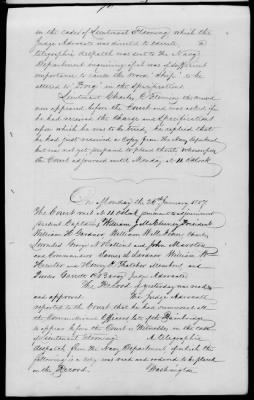 in the case of Lieutenant Fleming which the
Judge Advocate was directed to execute a
telegraphic despatch was sent to the Navy
Department inquiring if it was of sufficient
importance to cause the word "Ship" to be
altered to "Brig" in the Specification
Lieutenant Charles Fleming the accused
now appeared before the Court and was asked if
he had received the Charge and Specification
upon which he was to be tried, he replied that
he had just received a Copy from the Navy Department
but was not yet prepared to plead thereto, whereupon
the Court adjourned until Monday at 11 O'Clock
On Monday the 26th January 1857
The Court met at 11 O'Clock pursuant to adjournment
Present Captains William J. McCluney President
William H. Gardner William W. McKean Charles
Lowndes George A. Holland and John Marston
and Commanders James L. Lardner William W.
Hunter and Henry K. Thatcher Members and
Judge Advocate
The Record of yesterday was read
and approved The Judge Advocate
reported to the Court that he had summoned all
the Commissioned Officers late of the Bainbridge
to appear before the Court as Witnesses in the case
of Lieutenant Fleming A telegraphic
despatch from the Navy Department of which the
following is a copy was read and ordered to be placed
on the Record. Washington